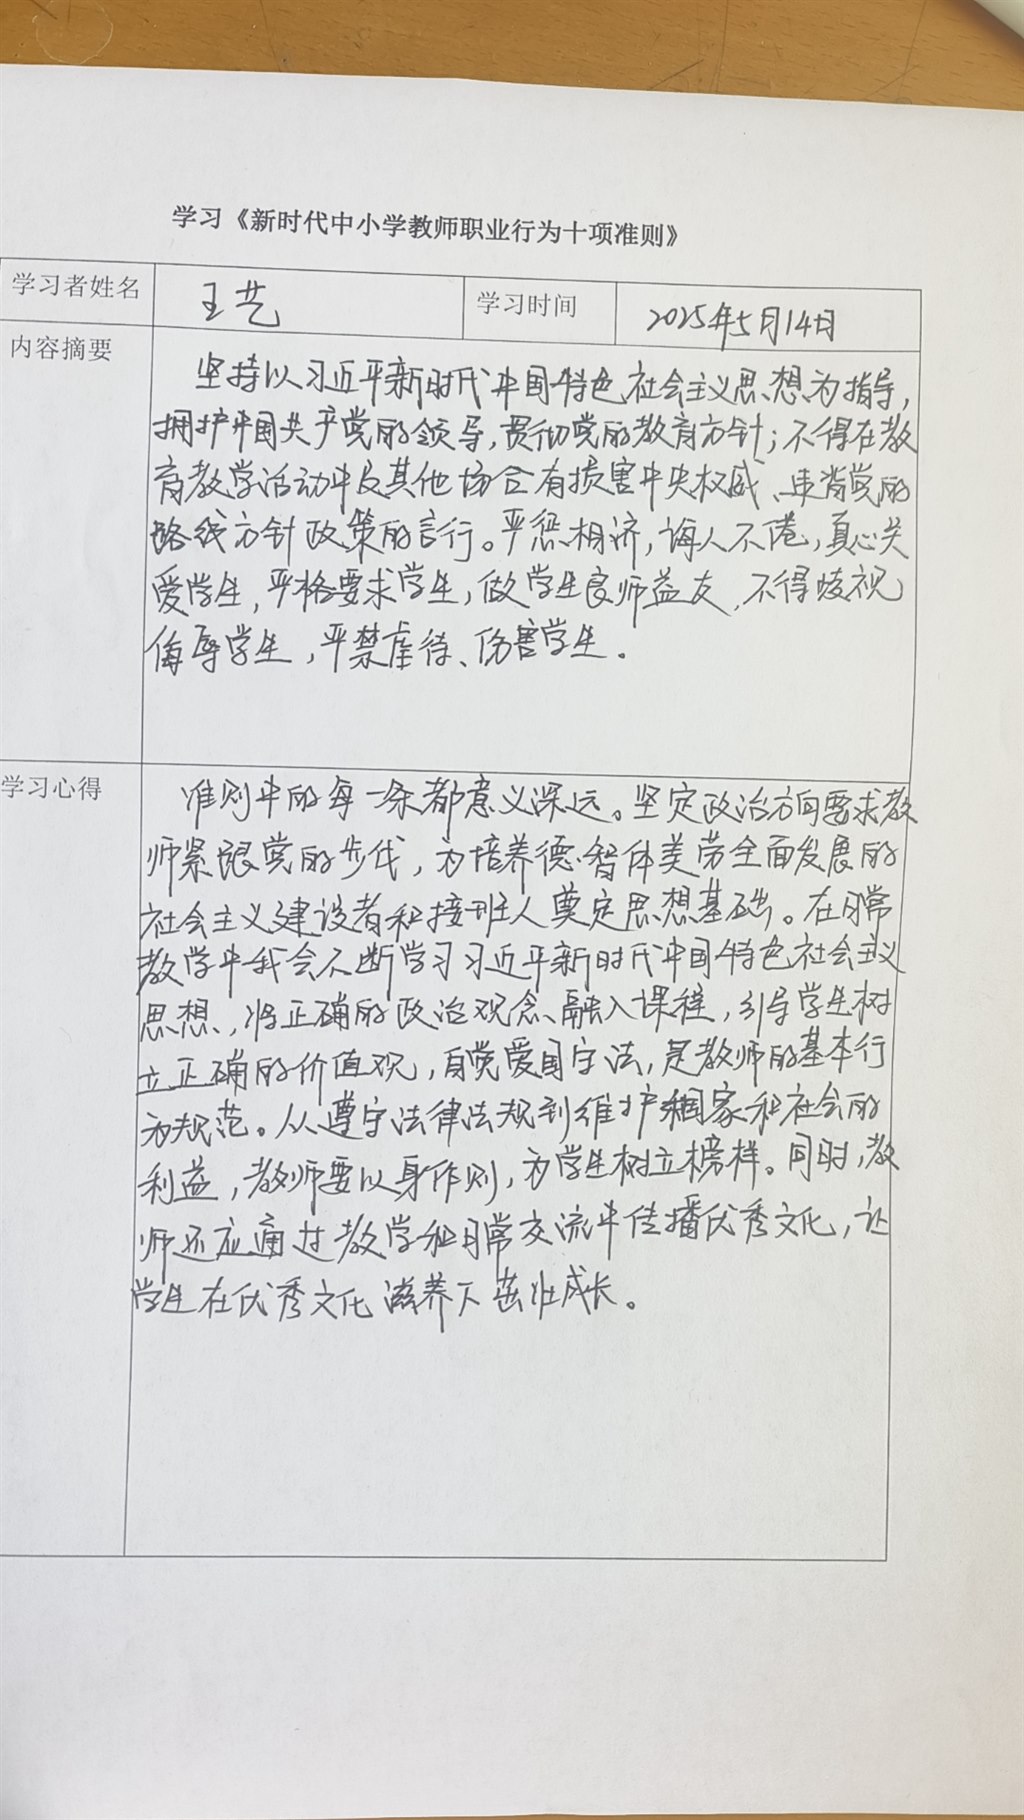 学习《新时代中小学教师职业行为十项准则》
学习者姓名 王艺 学习时间 2025年5月14日
内容摘要
坚持以习近平新时代中国特色社会主义思想为指导,
拥护中国共产党的领导,贯彻党的教育方针;不得在教
育教学活动中及其他场合有损害中央权威、违背党的
路线方针政策的言行。严慈相济,诲人不倦,真心关
爱学生,严格要求学生,做学生良师益友,不得歧视
侮辱学生,严禁虐待、伤害学生。
学习心得
准则中的每一条都意义深远。坚定政治方向要求教
师紧跟党的步伐,为培养德智体美劳全面发展的
社会主义建设者和接班人奠定思想基础。在日常
教学中我会不断学习习近平新时代中国特色社会主义
思想,将正确的政治观念融入课程,引导学生树
立正确的价值观,自觉爱国守法,是教师的基本行
为规范。从遵守法律法规到维护国家和社会的
利益,教师要以身作则,为学生树立榜样。同时,教
师还应通过教学和日常交流中传播优秀文化,让
学生在优秀文化滋养下茁壮成长。